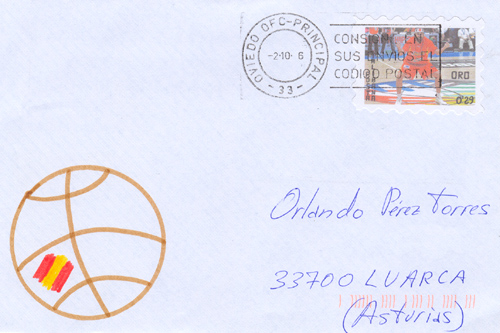 OVIEDO OFC-PRINCIPAL
-2-10- 6
-33-
CONSIGNE EN
SUS ENVIOS EL
CODIGO POSTAL
ORO
0'29
Orlando Pérez Torres
33700 LUARCA
(Asturias)